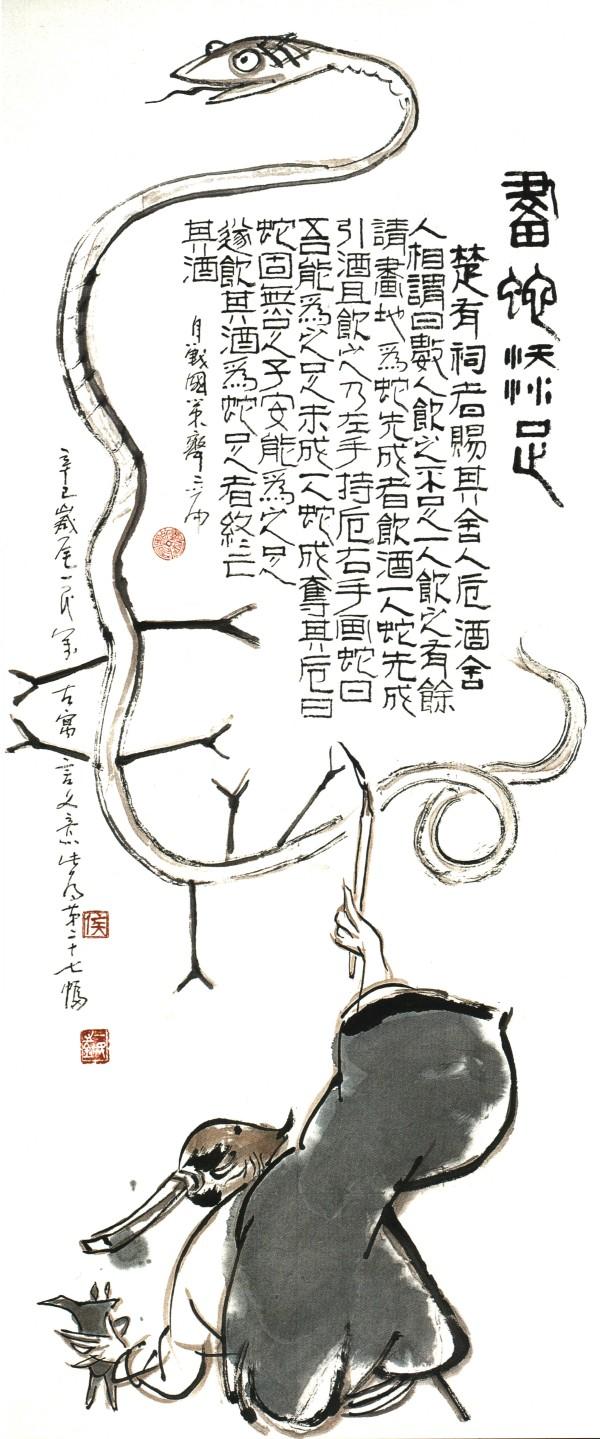 畫蛇添足
楚有祠者賜其舍人卮酒舍
人相謂曰數人飲之不足一人飲之有餘
請畫地爲蛇先成者飲酒一人蛇先成
引酒且飲之乃左手持卮右手画蛇曰
吾能爲之足未成一人蛇成奪其卮曰
蛇固無足子安能爲之足
遂飲其酒爲蛇足者終亡
其酒
自戰國策齊二
辛巳歲尾一民寫古寓言文意此為第二十七幅
侯